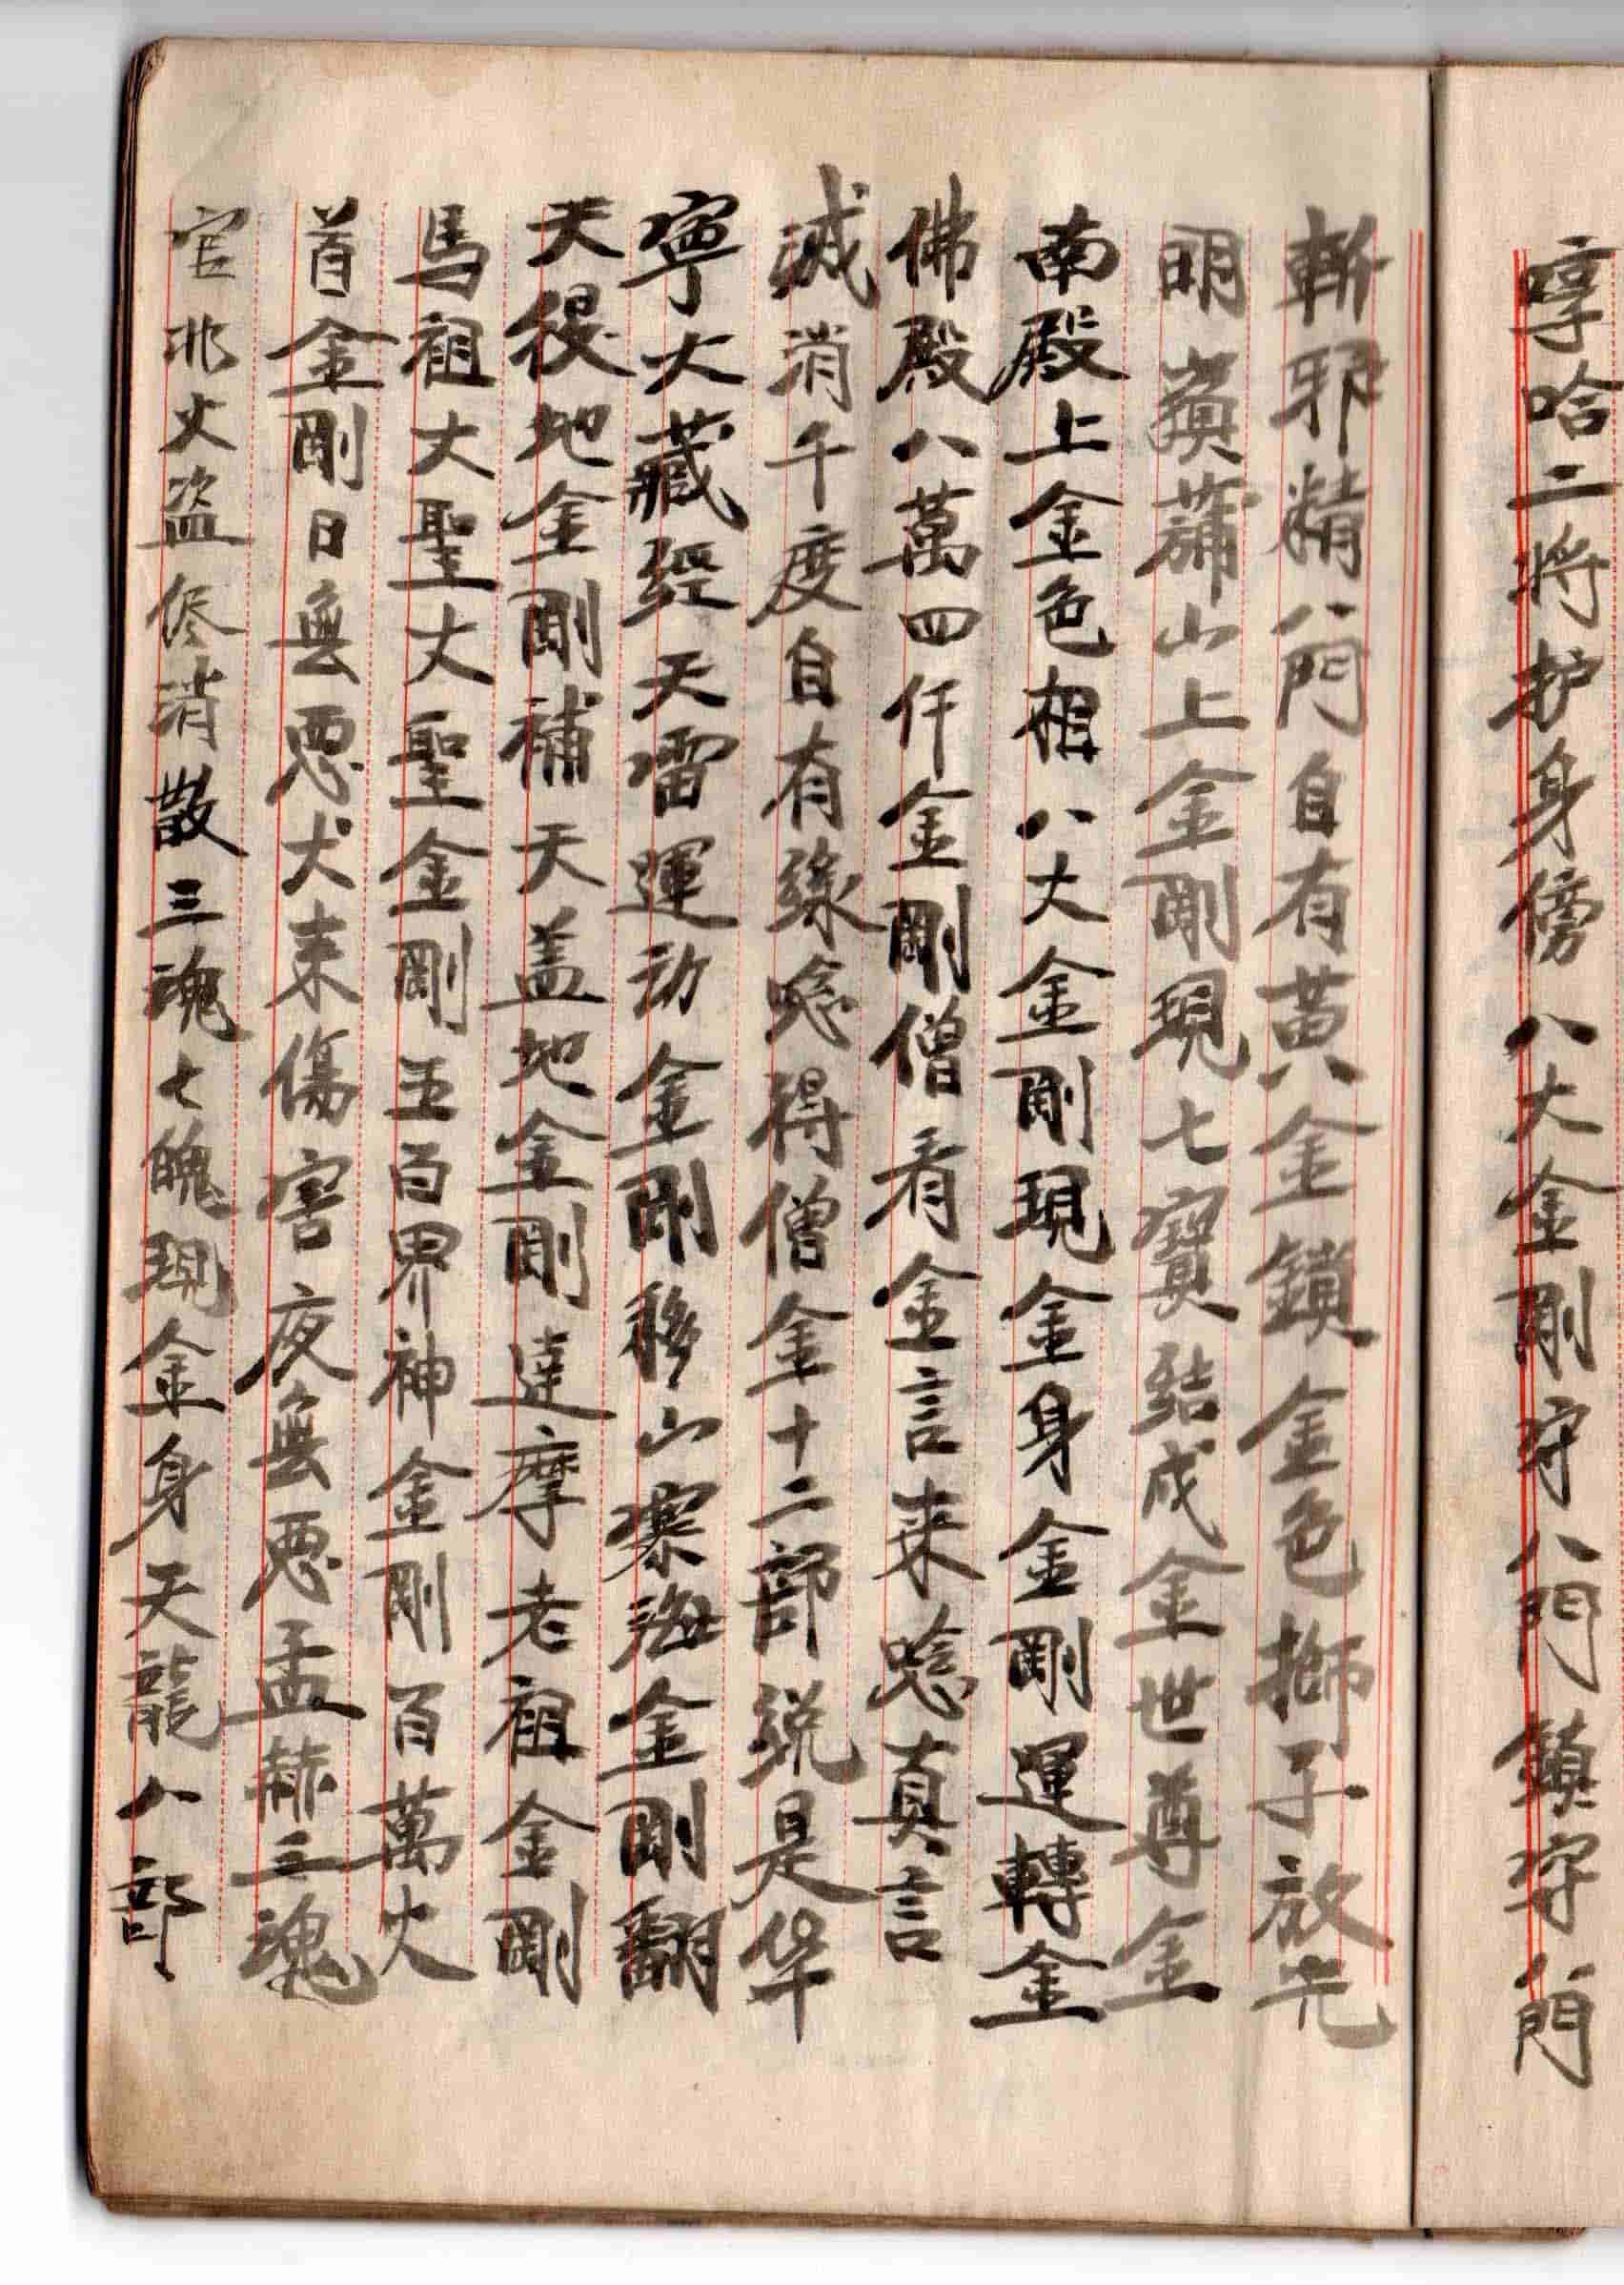 哼哈二将护身傍八大金剛守八門鎮守八門
斬邪精八門自有黄金鎖金色獅子放光
明 山上金剛現七寶結成金世尊金
南殿上金色相八大金剛現金身金剛運轉金
佛殿八萬四仟金剛僧看金言来唸真言
滅消千度自有緣唸得僧金十二部説是华
寧大藏經天雷運动金剛移山寨海金剛翻
天役地金剛補天盖地金剛達摩老祖金剛
馬祖丈聖丈聖金剛五百界神金剛百萬火
首金剛日無惡犬来傷害夜無惡孟赫三魂
官非火盗侭消散三魂七魄現金身天龍八部